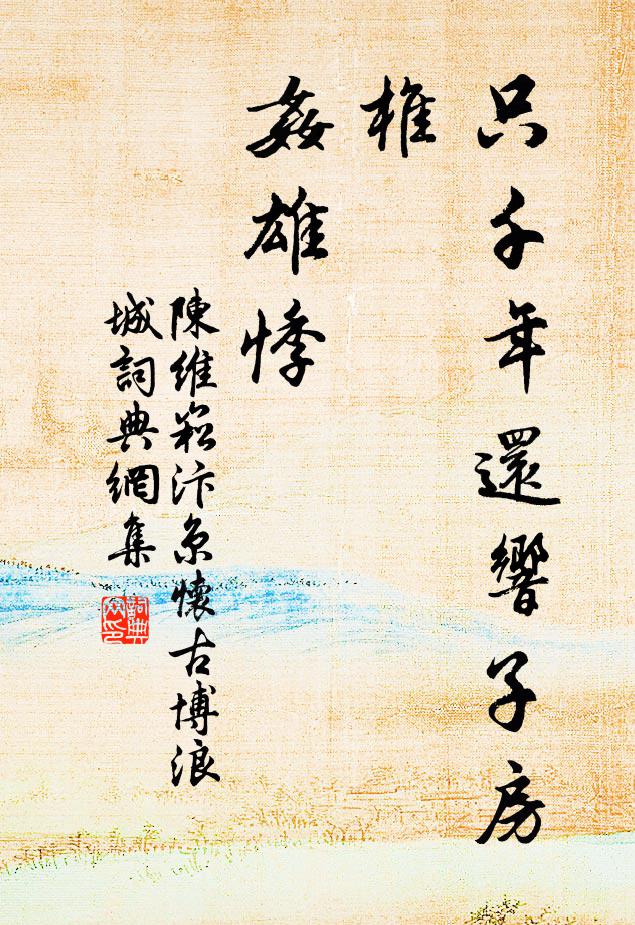 只千年還響子房
椎
姦雄悸
陳維崧汴京懷古博浪
城詞典網集
詞典